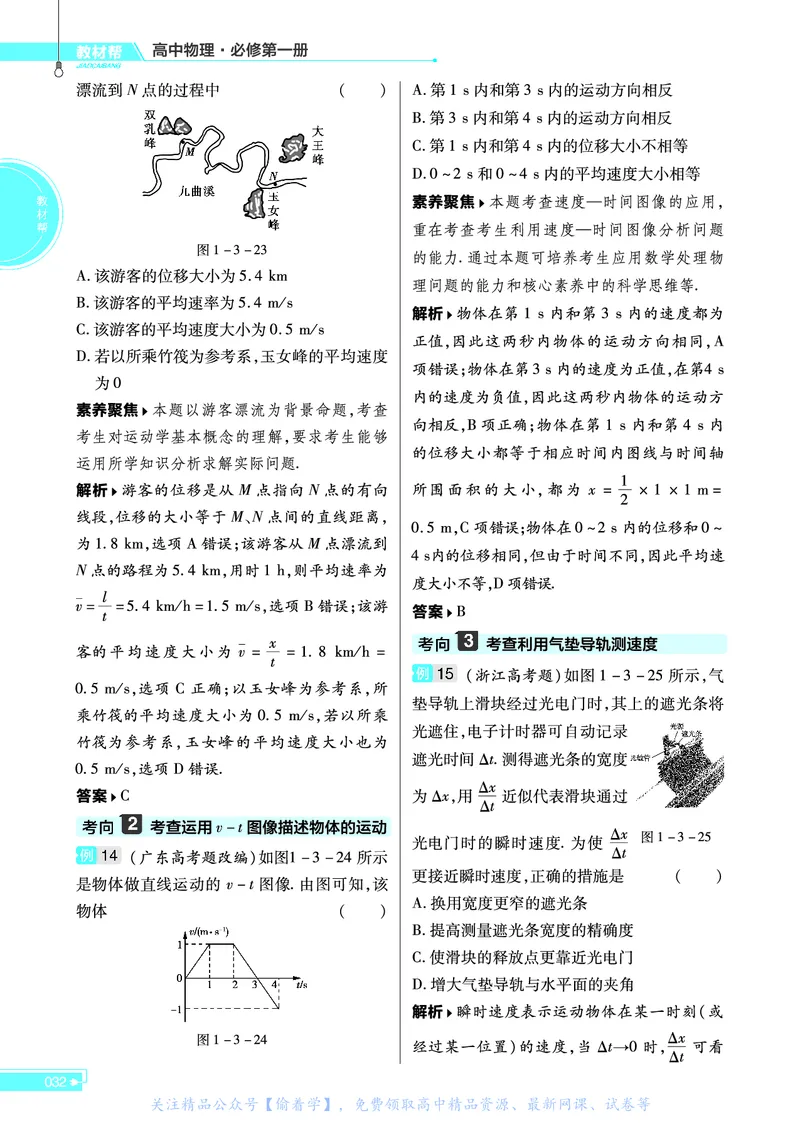 教材帮
JIAOCAIBANG
高中物理·必修第一册
教材帮
漂流到 N 点的过程中 ( )
双乳峰
大王峰
M
N
九曲溪
玉女峰
图 1-3-23
A. 该游客的位移大小为 5.4 km
B. 该游客的平均速率为 5.4 m/s
C. 该游客的平均速度大小为 0.5 m/s
D. 若以所乘竹筏为参考系,玉女峰的平均速度
为 0
素养聚焦 本题以游客漂流为背景命题,考查
考生对运动学基本概念的理解,要求考生能够
运用所学知识分析求解实际问题.
解析 游客的位移是从 M 点指向 N 点的有向
线段,位移的大小等于 M、N 点间的直线距离,
为 1.8 km,选项 A 错误;该游客从 M 点漂流到
N 点的路程为 5.4 km,用时 1 h,则平均速率为
v̄ = l/t = 5.4 km/h = 1.5 m/s,选项 B 错误;该游
客的平均速度大小为 v̄ = x/t = 1.8 km/h =
0.5 m/s,选项 C 正确;以玉女峰为参考系,所
乘竹筏的平均速度大小为 0.5 m/s,若以所乘
竹筏为参考系,玉女峰的平均速度大小也为
0.5 m/s,选项 D 错误.
答案 C
考向 2 考查运用 v-t 图像描述物体的运动
例 14 (广东高考题改编)如图1-3-24 所示
是物体做直线运动的 v-t 图像. 由图可知,该
物体 ( )
v/(m·s⁻¹)
1
0
1 2 3 4 t/s
-1
图 1-3-24
A. 第 1 s 内和第 3 s 内的运动方向相反
B. 第 3 s 内和第 4 s 内的运动方向相反
C. 第 1 s 内和第 4 s 内的位移大小不相等
D. 0~2 s 和 0~4 s 内的平均速度大小相等
素养聚焦 本题考查速度—时间图像的应用,
重在考查考生利用速度—时间图像分析问题
的能力. 通过本题可培养考生应用数学处理物
理问题的能力和核心素养中的科学思维等.
解析 物体在第 1 s 内和第 3 s 内的速度都为
正值,因此这两秒内物体的运动方向相同,A
项错误;物体在第 3 s 内的速度为正值,在第 4 s
内的速度为负值,因此这两秒内物体的运动方
向相反,B 项正确;物体在第 1 s 内和第 4 s 内
的位移大小都等于相应时间内图线与时间轴
所围面积的大小,都为 x = 1/2 × 1 × 1 m =
0.5 m,C 项错误;物体在 0~2 s 内的位移和 0~
4 s内的位移相同,但由于时间不同,因此平均速
度大小不等,D 项错误.
答案 B
考向 3 考查利用气垫导轨测速度
例 15 (浙江高考题)如图 1-3-25 所示,气
垫导轨上滑块经过光电门时,其上的遮光条将
光遮住,电子计时器可自动记录
遮光时间 Δt. 测得遮光条的宽度
为 Δx,用 Δx/Δt 近似代表滑块通过
光源
遮光条
光敏管
光电门时的瞬时速度. 为使 Δx/Δt
图 1-3-25
更接近瞬时速度,正确的措施是 ( )
A. 换用宽度更窄的遮光条
B. 提高测量遮光条宽度的精确度
C. 使滑块的释放点更靠近光电门
D. 增大气垫导轨与水平面的夹角
解析 瞬时速度表示运动物体在某一时刻(或
经过某一位置)的速度,当 Δt→0 时, Δx/Δt 可看
032
关注精品公众号【偷着学】，免费领取高中精品资源、最新网课、试卷等